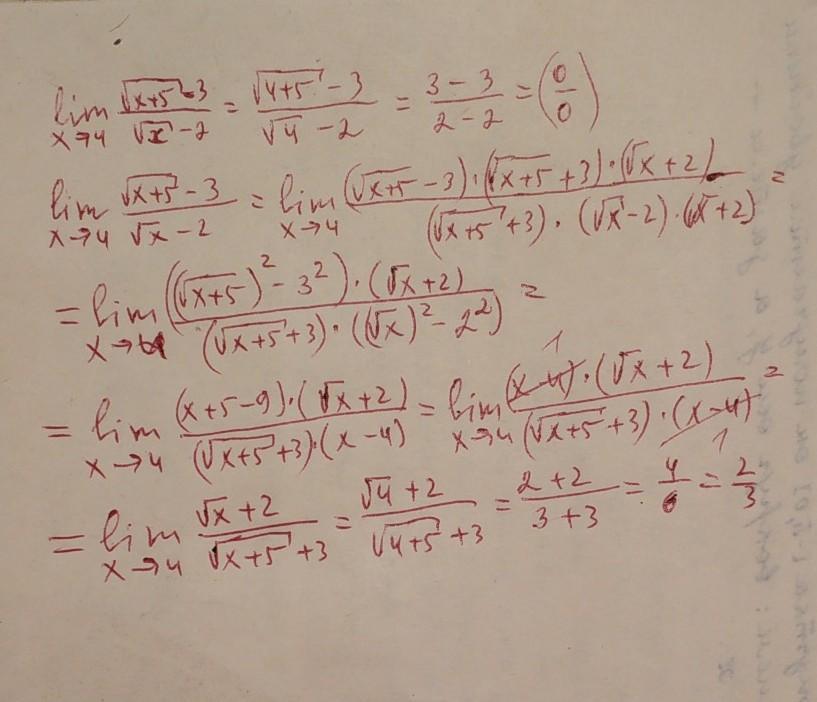 lim x→4 (√(x+5) - 3)/(√x - 2) = (√(4+5) - 3)/(√4 - 2) = (3 - 3)/(2 - 2) = (0/0)
lim x→4 (√(x+5) - 3)/(√x - 2) = lim x→4 ((√(x+5) - 3)·(√(x+5) + 3)·(√x + 2))/((√(x+5) + 3)·(√x - 2)·(√x + 2)) =
= lim x→4 (((√(x+5))² - 3²)·(√x + 2))/((√(x+5) + 3)·((√x)² - 2²)) =
= lim x→4 ((x+5-9)·(√x + 2))/((√(x+5) + 3)·(x-4)) = lim x→4 ((x-4)·(√x + 2))/((√(x+5) + 3)·(x-4)) =
= lim x→4 (√x + 2)/(√(x+5) + 3) = (√4 + 2)/(√(4+5) + 3) = (2 + 2)/(3 + 3) = 4/6 = 2/3